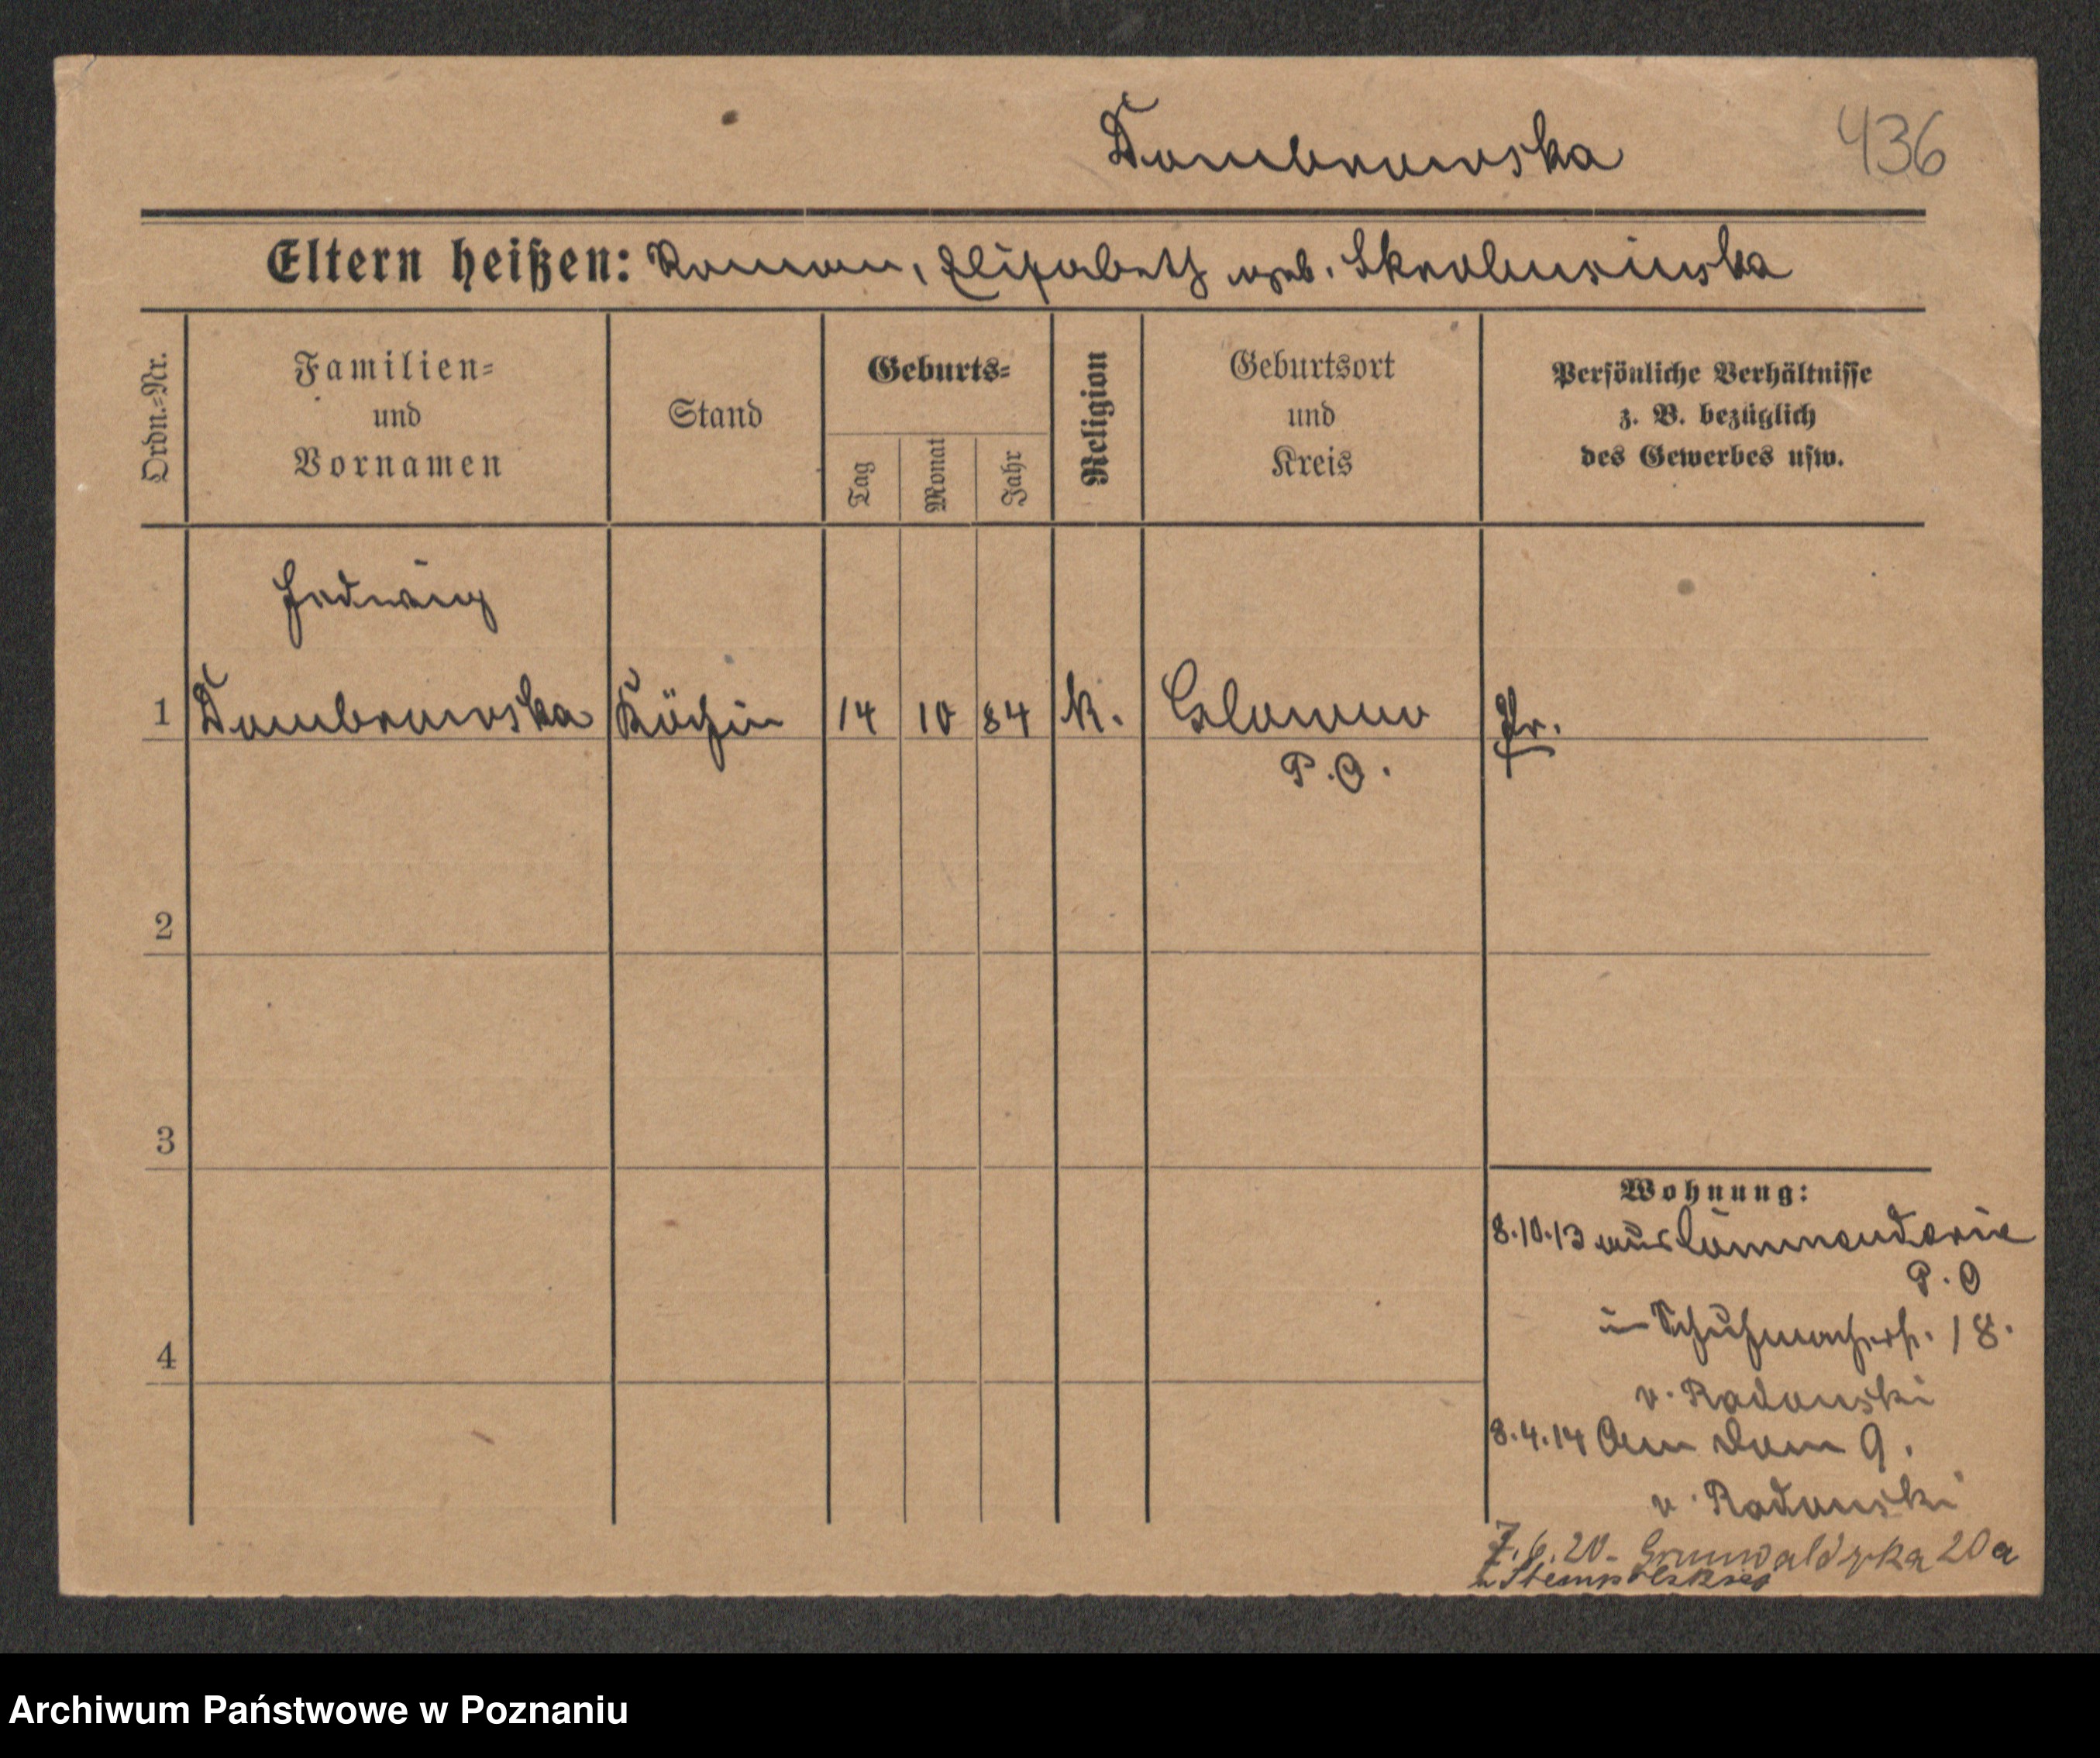 Dombrowska 436
Eltern heißen: Roman, Elisabeth geb.
Ordn.-Nr. Familien- und Vornamen Stand Geburts- Tag Monat Jahr Religion Geburtsort und Kreis Persönliche Verhältnisse z. B. bezüglich des Gewerbes usw.
Hedwig
1 Dombrowska Köchin 14 10 84 k. Glowno Pr.
P. O.
2
3
4
Wohnung:
8.10.13 aus Commenderie
P. O
in Schuhmacherstr. 18.
v. Radonski
8.4.14 Am Dom 9.
v. Radonski
7.6.20 - Grunwaldzka 20a
Archiwum Państwowe w Poznaniu